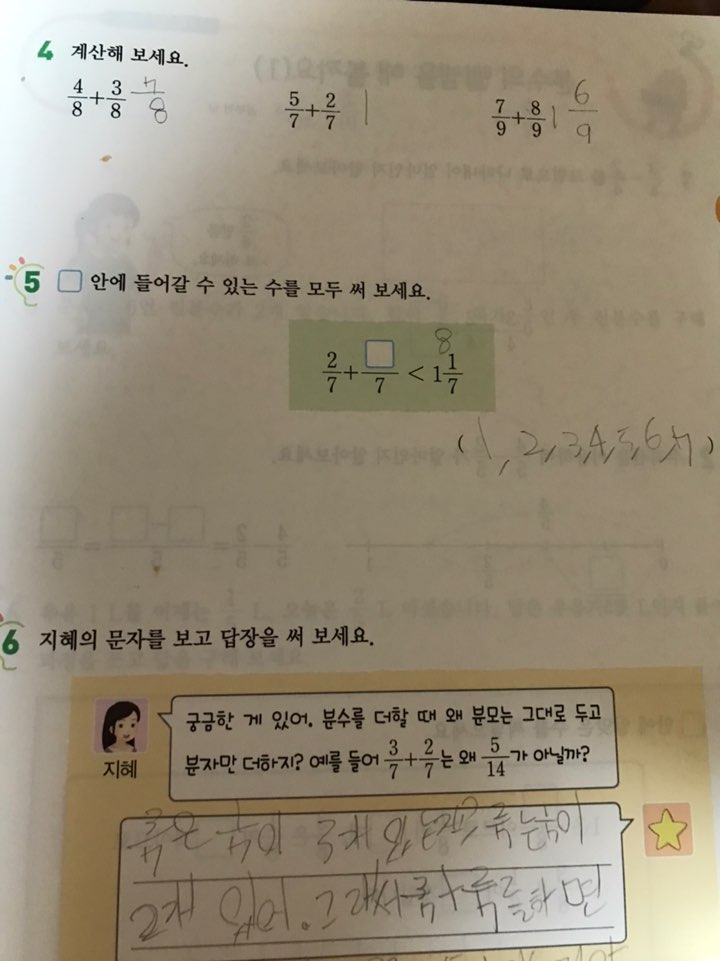 4 계산해 보세요.
4/8+3/8 7/8 5/7+2/7 1 7/9+8/9 1 6/9
5 □ 안에 들어갈 수 있는 수를 모두 써 보세요.
8
2/7+□/7<1 1/7
(1, 2, 3, 4, 5, 6, 7)
6 지혜의 문자를 보고 답장을 써 보세요.
궁금한 게 있어. 분수를 더할 때 왜 분모는 그대로 두고
분자만 더하지? 예를 들어 3/7+2/7는 왜 5/14가 아닐까?
지혜
3/7은 1/7이 3개 있고 2/7는 1/7이
2개 있어. 그래서 3/7+2/7를 하면